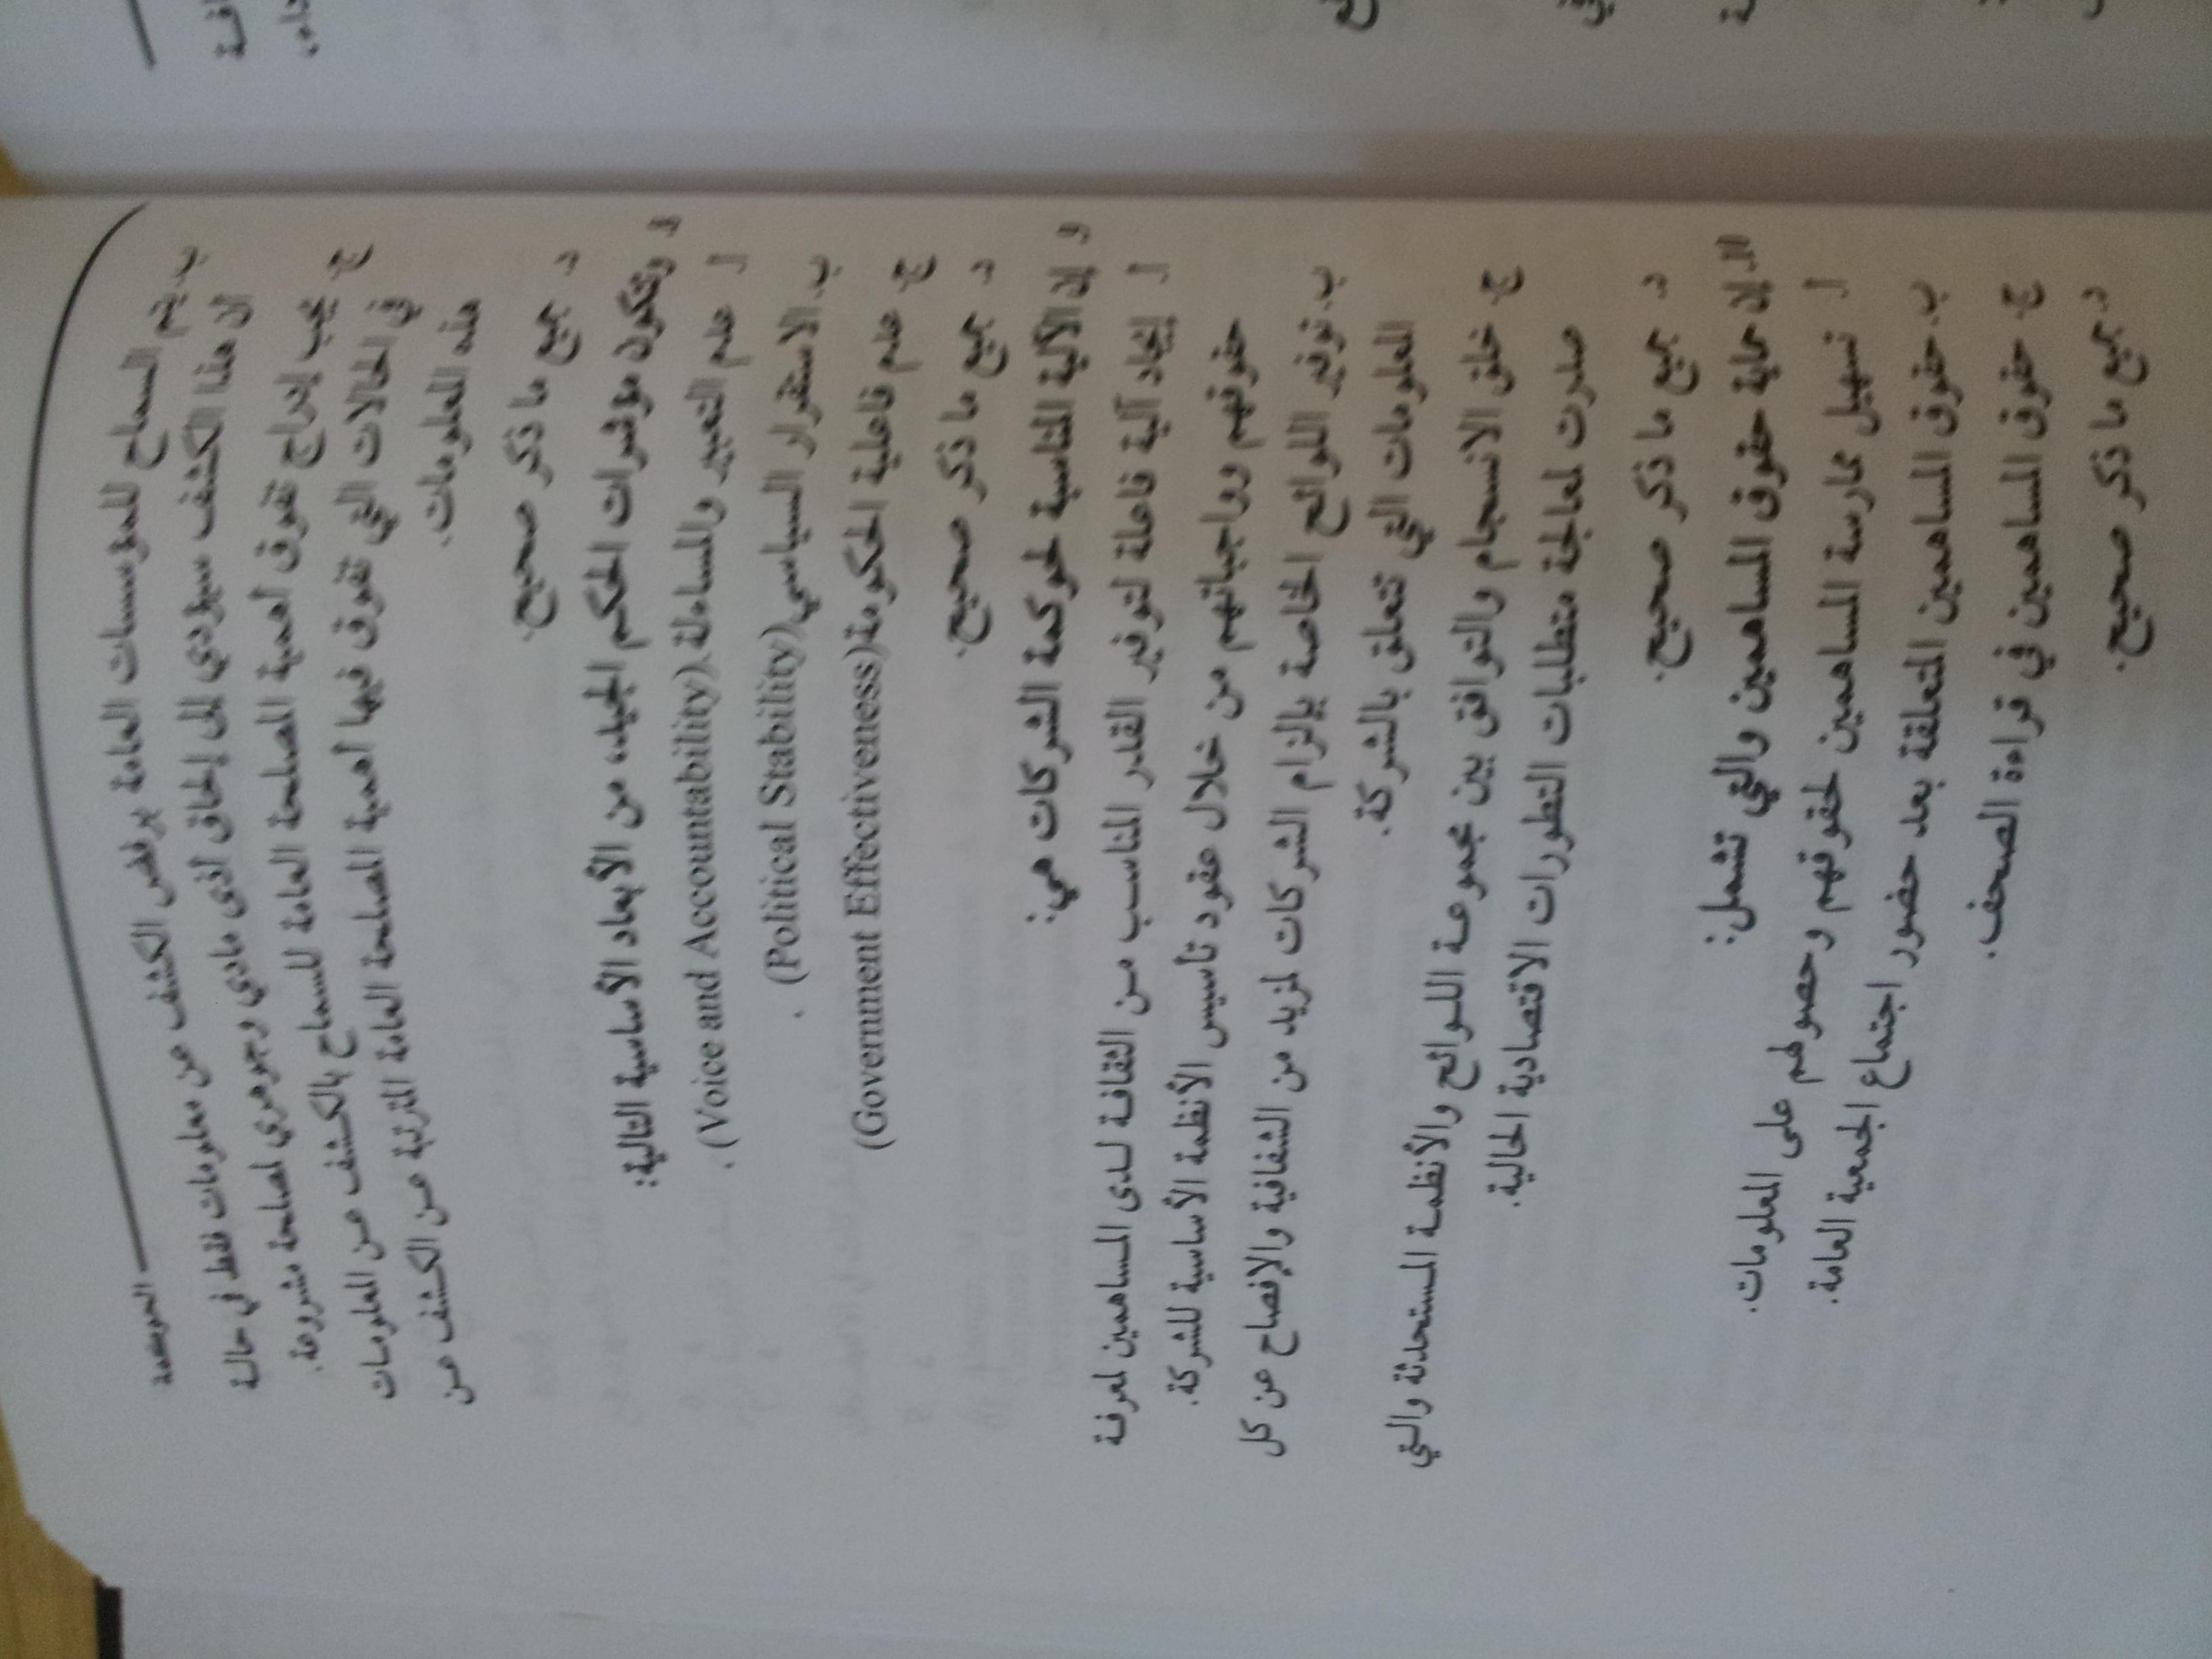 الحوكمة
ب. يتم السماح للمؤسسات العامة برفض الكشف عن معلومات فقط في حالة
أن هذا الكشف سيؤدي إلى إلحاق أذى مادي وجوهري لمصلحة مشروعة.
ج. يجب إدراج تفوق أهمية المصلحة العامة للسماح بالكشف عن المعلومات
في الحالات التي تفوق فيها أهمية المصلحة العامة المترتبة عن الكشف عن
هذه المعلومات.
د. جميع ما ذكر صحيح.
وتتكون مؤشرات الحكم الجيد، من الأبعاد الأساسية التالية:
أ. عدم التعبير والمساءلة (Voice and Accountability).
ب. الاستقرار السياسي(Political Stability) .
ج. عدم فاعلية الحكومة(Government Effectiveness)
د. جميع ما ذكر صحيح.
إن الآلية المناسبة لحوكمة الشركات هي:
أ. إيجاد آلية فاعلة لتوفير القدر المناسب من الثقافة لدى المساهمين لمعرفة
حقوقهم وواجباتهم من خلال عقود تأسيس الأنظمة الأساسية للشركة.
ب. توفير اللوائح الخاصة بإلزام الشركات لمزيد من الشفافية والإفصاح عن كل
المعلومات التي تتعلق بالشركة.
ج. خلق الانسجام والتوافق بين مجموعة اللوائح والأنظمة المستحدثة والتي
صدرت لمعالجة متطلبات التطورات الاقتصادية الحالية.
د. جميع ما ذكر صحيح.
إن حماية حقوق المساهمين والتي تشمل:
أ. تسهيل ممارسة المساهمين لحقوقهم وحصولهم على المعلومات.
ب. حقوق المساهمين المتعلقة بعد حضور اجتماع الجمعية العامة.
ج. حقوق المساهمين في قراءة الصحف.
د. جميع ما ذكر صحيح.